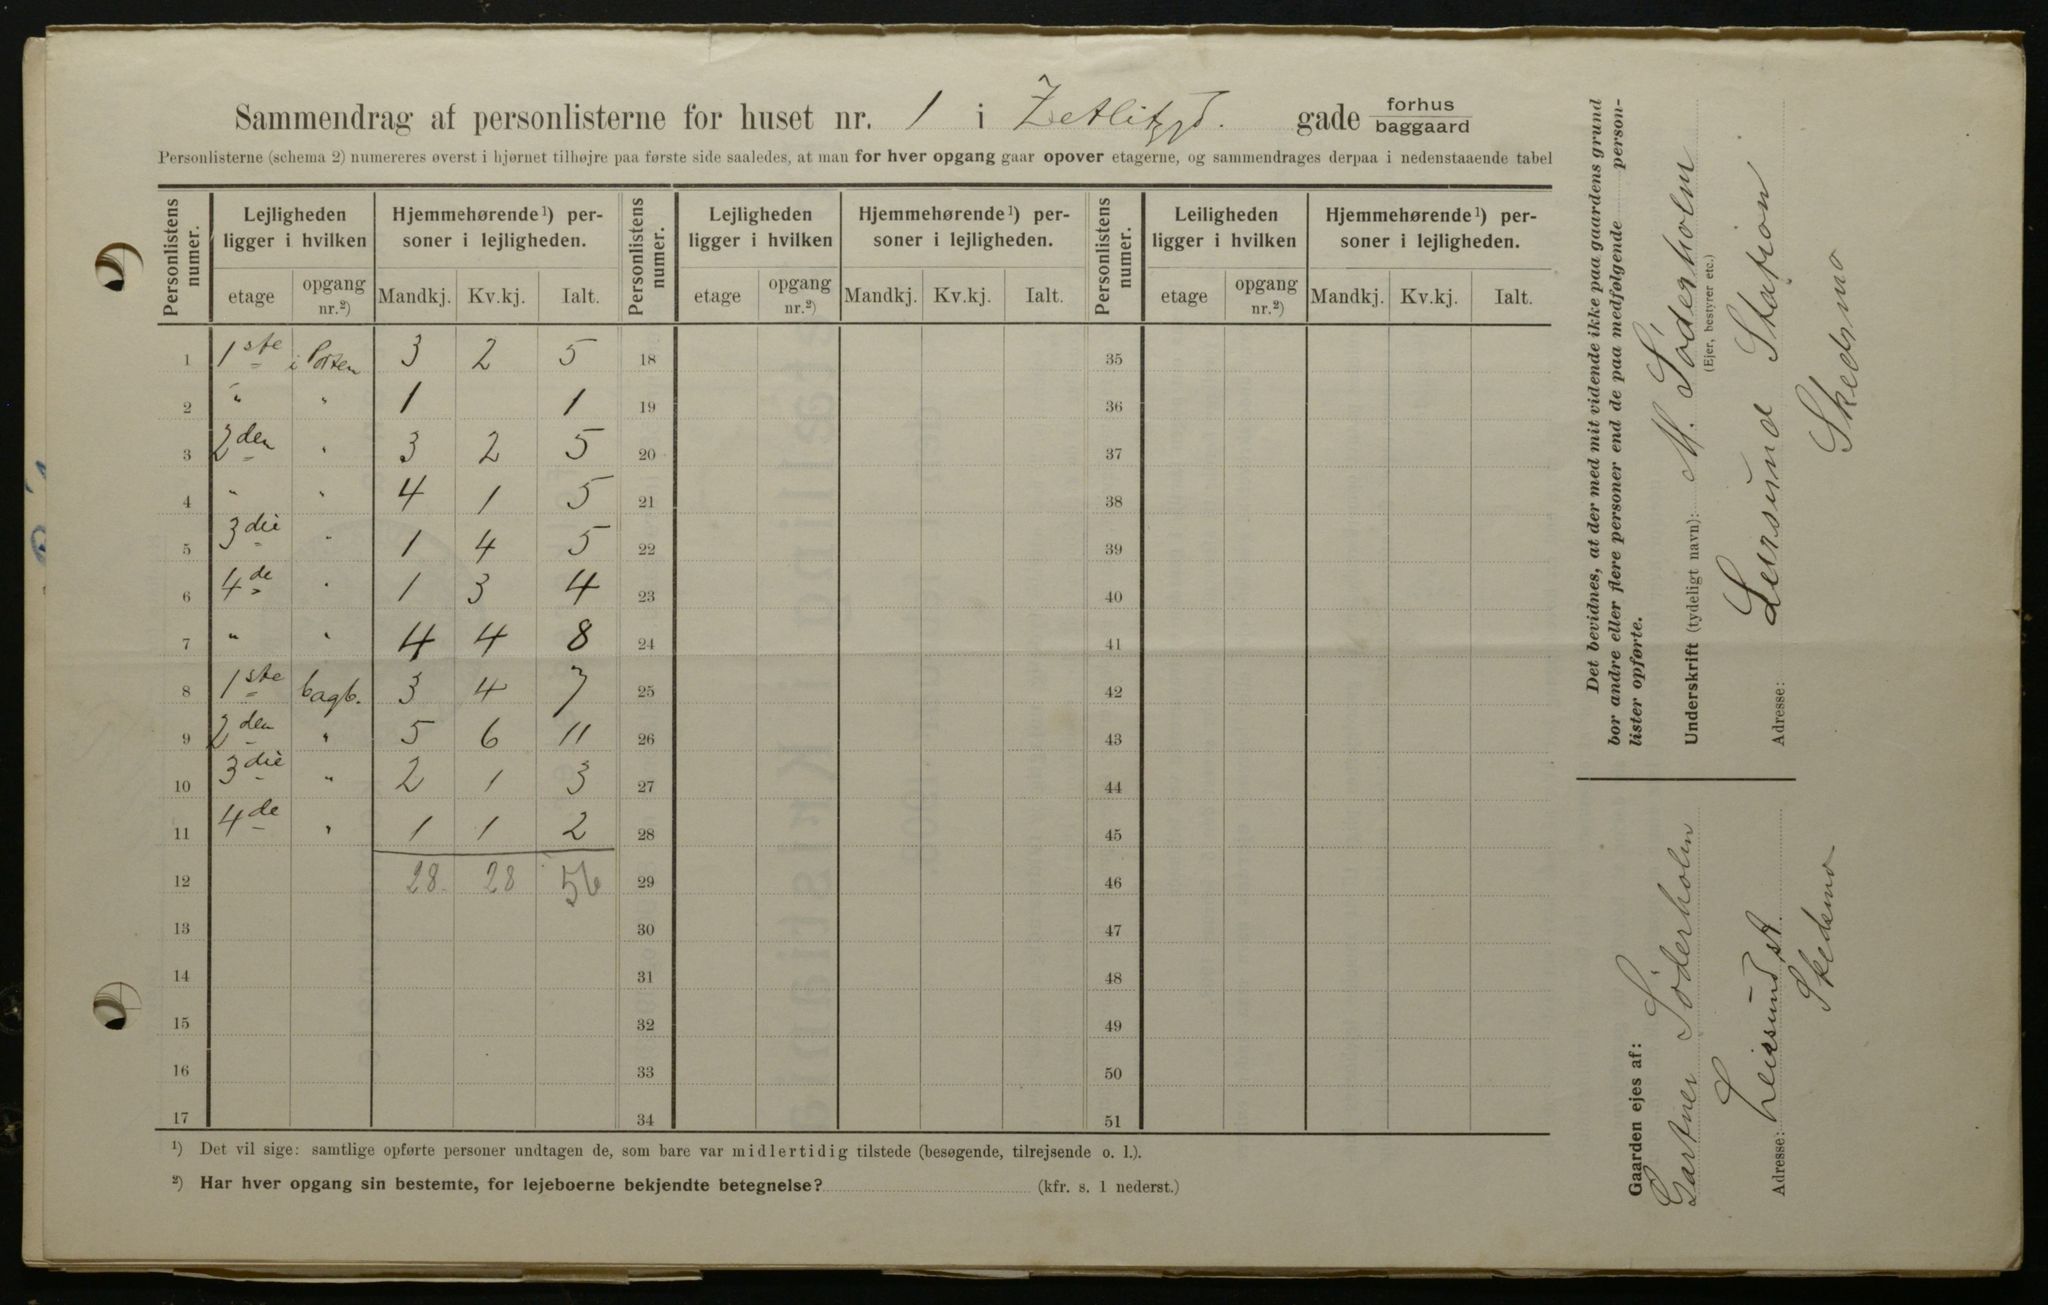 Sammendrag af personlisterne for huset nr. 1 i Zetlitzgd. gade forhus baggaard
Personlisterne (schema 2) numereres øverst i hjørnet tilhøjre paa første side saaledes, at man for hver opgang gaar opover etagerne, og sammendrages derpaa i nedenstaaende tabel
Personlistens numer. Lejligheden ligger i hvilken Hjemmehørende¹) personer i lejligheden. Personlistens numer. Lejligheden ligger i hvilken Hjemmehørende¹) personer i lejligheden. Personlistens numer. Leiligheden ligger i hvilken Hjemmehørende¹) personer i lejligheden.
etage opgang nr.²) Mandkj. Kv.kj. Ialt. etage opgang nr.²) Mandkj. Kv.kj. Ialt. etage opgang nr.²) Mandkj. Kv.kj. Ialt.
1 1ste i Porten 3 2 5 18 35
2 " " 1 1 19 36
3 2den " 3 2 5 20 37
4 " " 4 1 5 21 38
5 3die " 1 4 5 22 39
6 4de " 1 3 4 23 40
7 " " 4 4 8 24 41
8 1ste bagb. 3 4 7 25 42
9 2den " 5 6 11 26 43
10 3die " 2 1 3 27 44
11 4de " 1 1 2 28 45
12 28 28 56 29 46
13 30 47
14 31 48
15 32 49
16 33 50
17 34 51
¹) Det vil sige: samtlige opførte personer undtagen de, som bare var midlertidig tilstede (besøgende, tilrejsende o. l.).
²) Har hver opgang sin bestemte, for lejeboerne bekjendte betegnelse? (kfr. s. 1 nederst.)
Det bevidnes, at der med mit vidende ikke paa gaardens grund
bor andre eller flere personer end de paa medfølgende person-
lister opførte.
Underskrift (tydeligt navn): M. Söderholm
(Ejer, bestyrer etc.)
Adresse: Leirsund Station
Skedsmo
Gaarden ejes af:
Gartner Söderholm
Adresse: Leirsund st.
Skedsmo